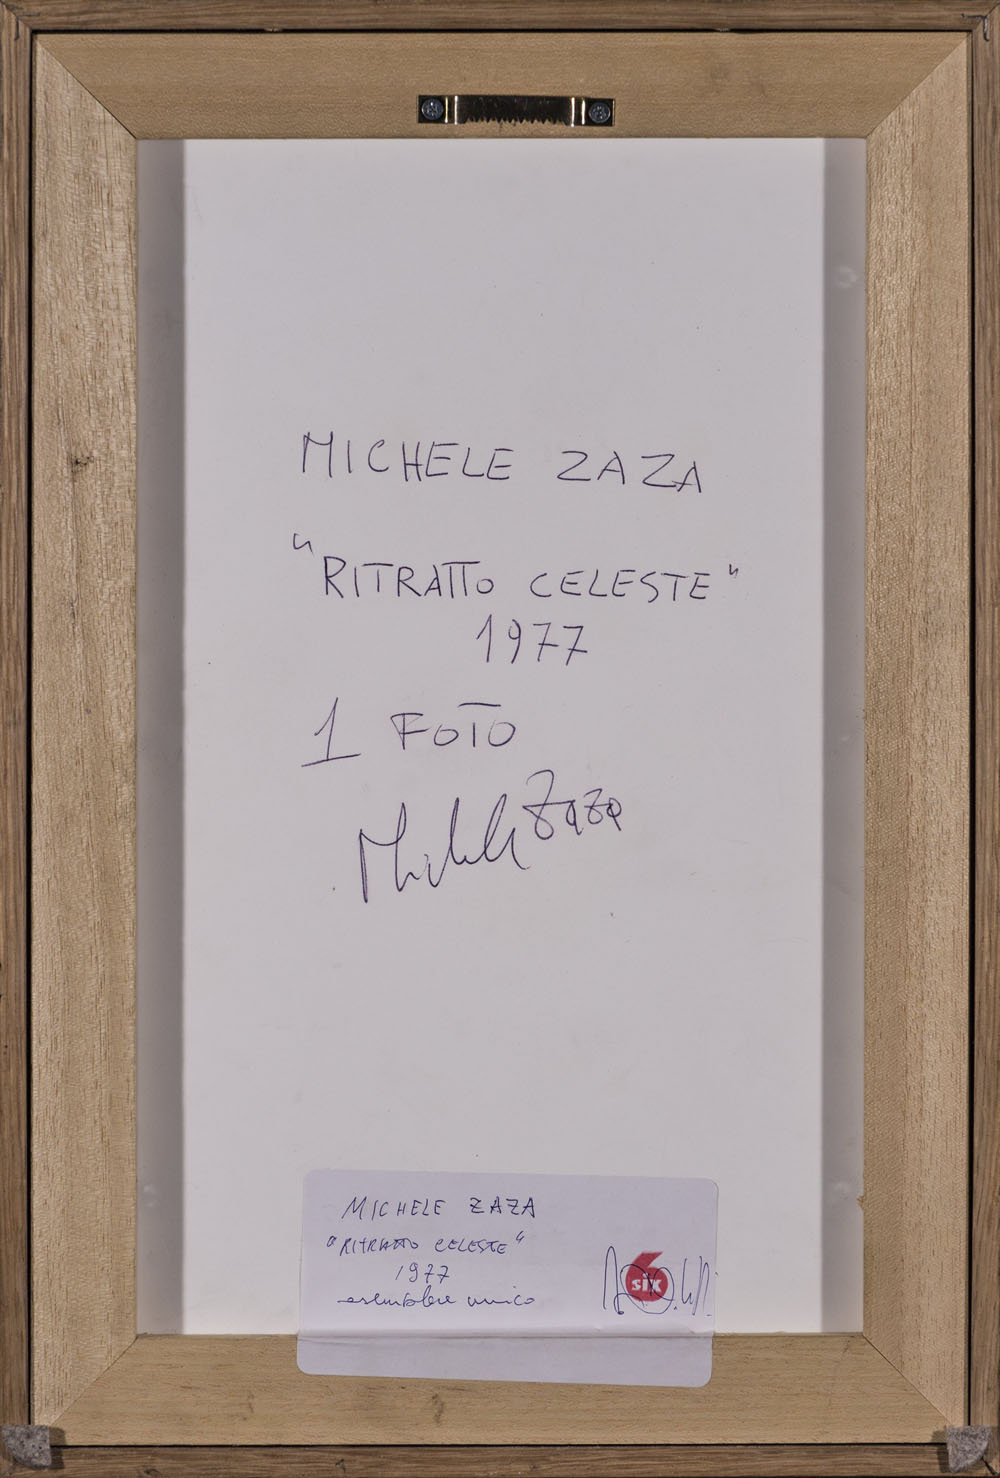 MICHELE ZAZA
"RITRATTO CELESTE"
1977
1 FOTO
Michele Zaza
MICHELE ZAZA
"RITRATTO CELESTE"
1977
esemplare unico
six